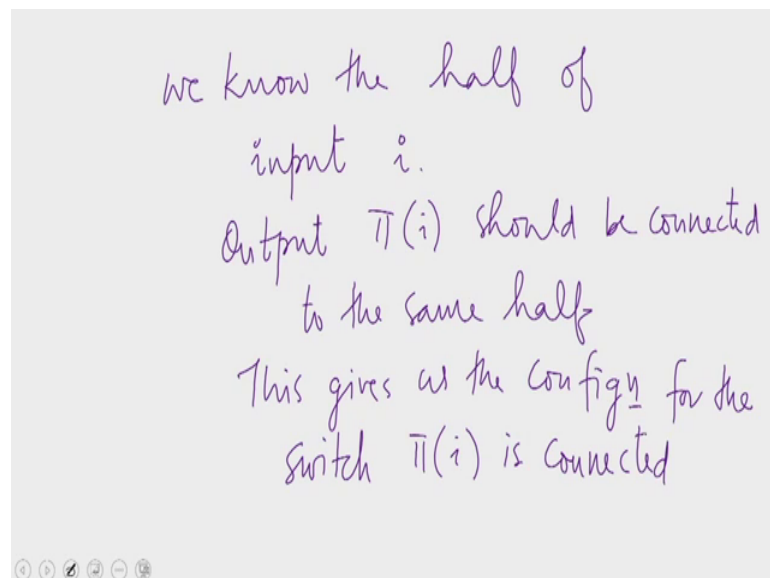 we know the half of
input i.
Output π(i) should be connected
to the same half
This gives us the Confign for the
switch π(i) is connected